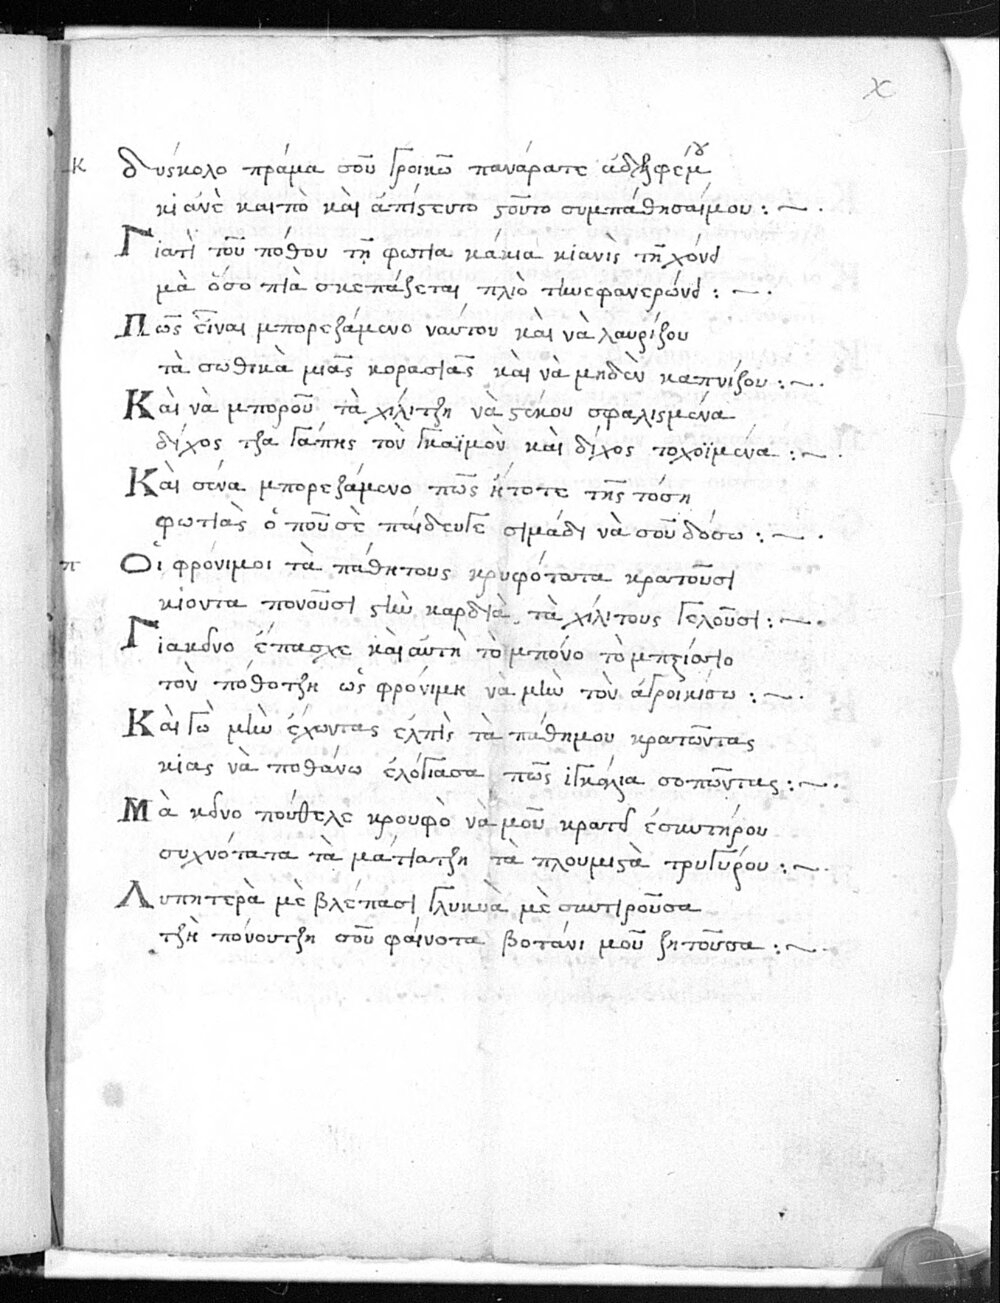 χ
κ δύσκολο πράμα σοῦ γροικῶ πανάρατε ἀδελφέμου
κι ἀνὲ καιπὸ κὰι ἀπίστευτο στοῦτο συμπάθησαίμου : ~ .
Γιατὶ τοῦ πόθου τῆ φωτιὰ κάμιὰ κιανὶς τῆ χόνει
μὰ ὅσο πιὰ σκεπάζεται πλιὸ τὴνεφανερώνει : ~ .
Πῶς εἶναι μπορεζάμενο νάυτου κὰι νὰ λαυρίζου
τὰ σωθικὰ μιᾶς κορασιᾶς κὰι νὰ μηδεν καπνίζου : ~ .
Κὰι νὰ μποροῦ τὰ χίλιτζη νὰ στέκου σφαλισμένα
δίχος τζα γάπης τὸν γκαϊμὸν κὰι δίχος τοχοϊμένα : ~ .
Κὰι σένα μπορεζάμενο πῶς ἤτοτε τῆς τοση
φωτιὰς ὁ ποῦ σὲ πάιδευγε σιμάδι νὰ σοῦ δόσω : ~ .
π Οἱ φρόνιμοι τὰ πάθητους κρυφότατα κρατοῦσι
κιοντα πονοῦσι στὴν καρδιὰ, τὰ χίλιτους γελοῦσι : ~ .
Γιακεῖνο ἔπασχε κὰι αὐτὴ τὸ μπόνο τὸ μπηζιάσιο
τὸν πόθοτζη ὡς φρόνιμη νὰ μὴν τὸν ἀγροικίσω : ~ .
Κὰι γὼ μὴν ἔχωντας ἐλπὶς τὰ πάθημου κρατῶντας
κιας νὰ ποθάνω ἐλόγιασα πῶς ἰγκάζια σοπῶντας : ~ .
Μὰ κεῖνο πούθελε κρουφὸ νὰ μοῦ κρατεῖ ἐσυντήρου
συχνότατα τὰ μάτιατζη τὰ πλουμιστὰ τρυγύρου : ~ .
Λυπητερὰ μὲ βλέπασι γλυκυὰ μὲ συντιροῦσα
τζὴ πόνουτζη σοῦ φάινοτα βοτάνι μοῦ ζητοῦσσα : ~ .